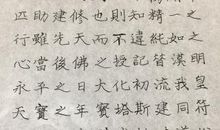 匹助建修也則知精一之
行雖先天而不違純如之
心當後佛之授記昔漢明
永平之日大化初流我皇
天寶之年寶塔斯建同符